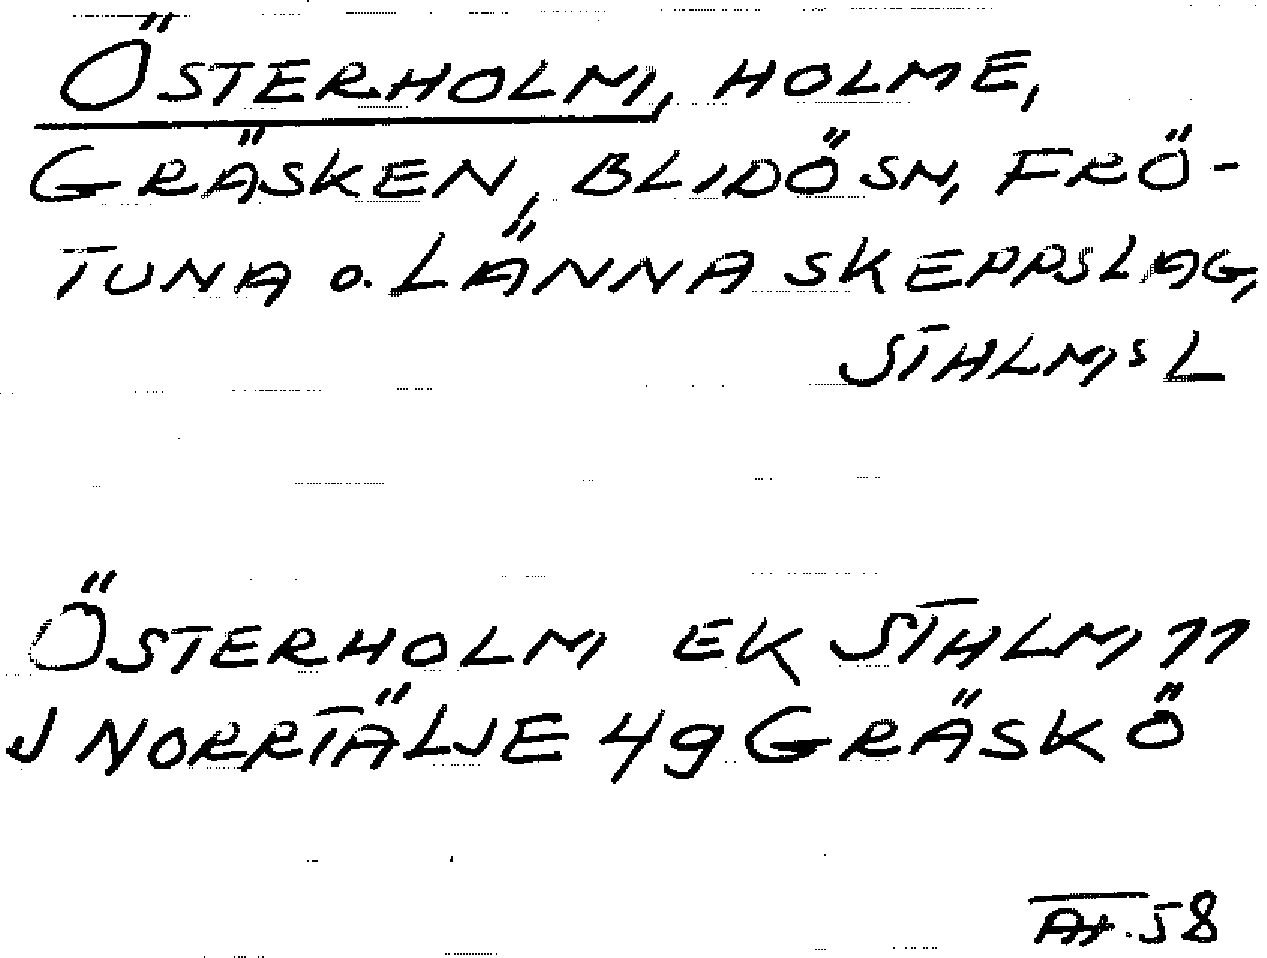 ÖSTERHOLM, HOLME,
GRÄSKEN, BLIDÖ SN, FRÖ-
TUNA O. LÄNNA SKEPPSLAG,
STHLMS L
ÖSTERHOLM EK STHLM 11
J NORRTÄLJE 49 GRÄSKÖ
58